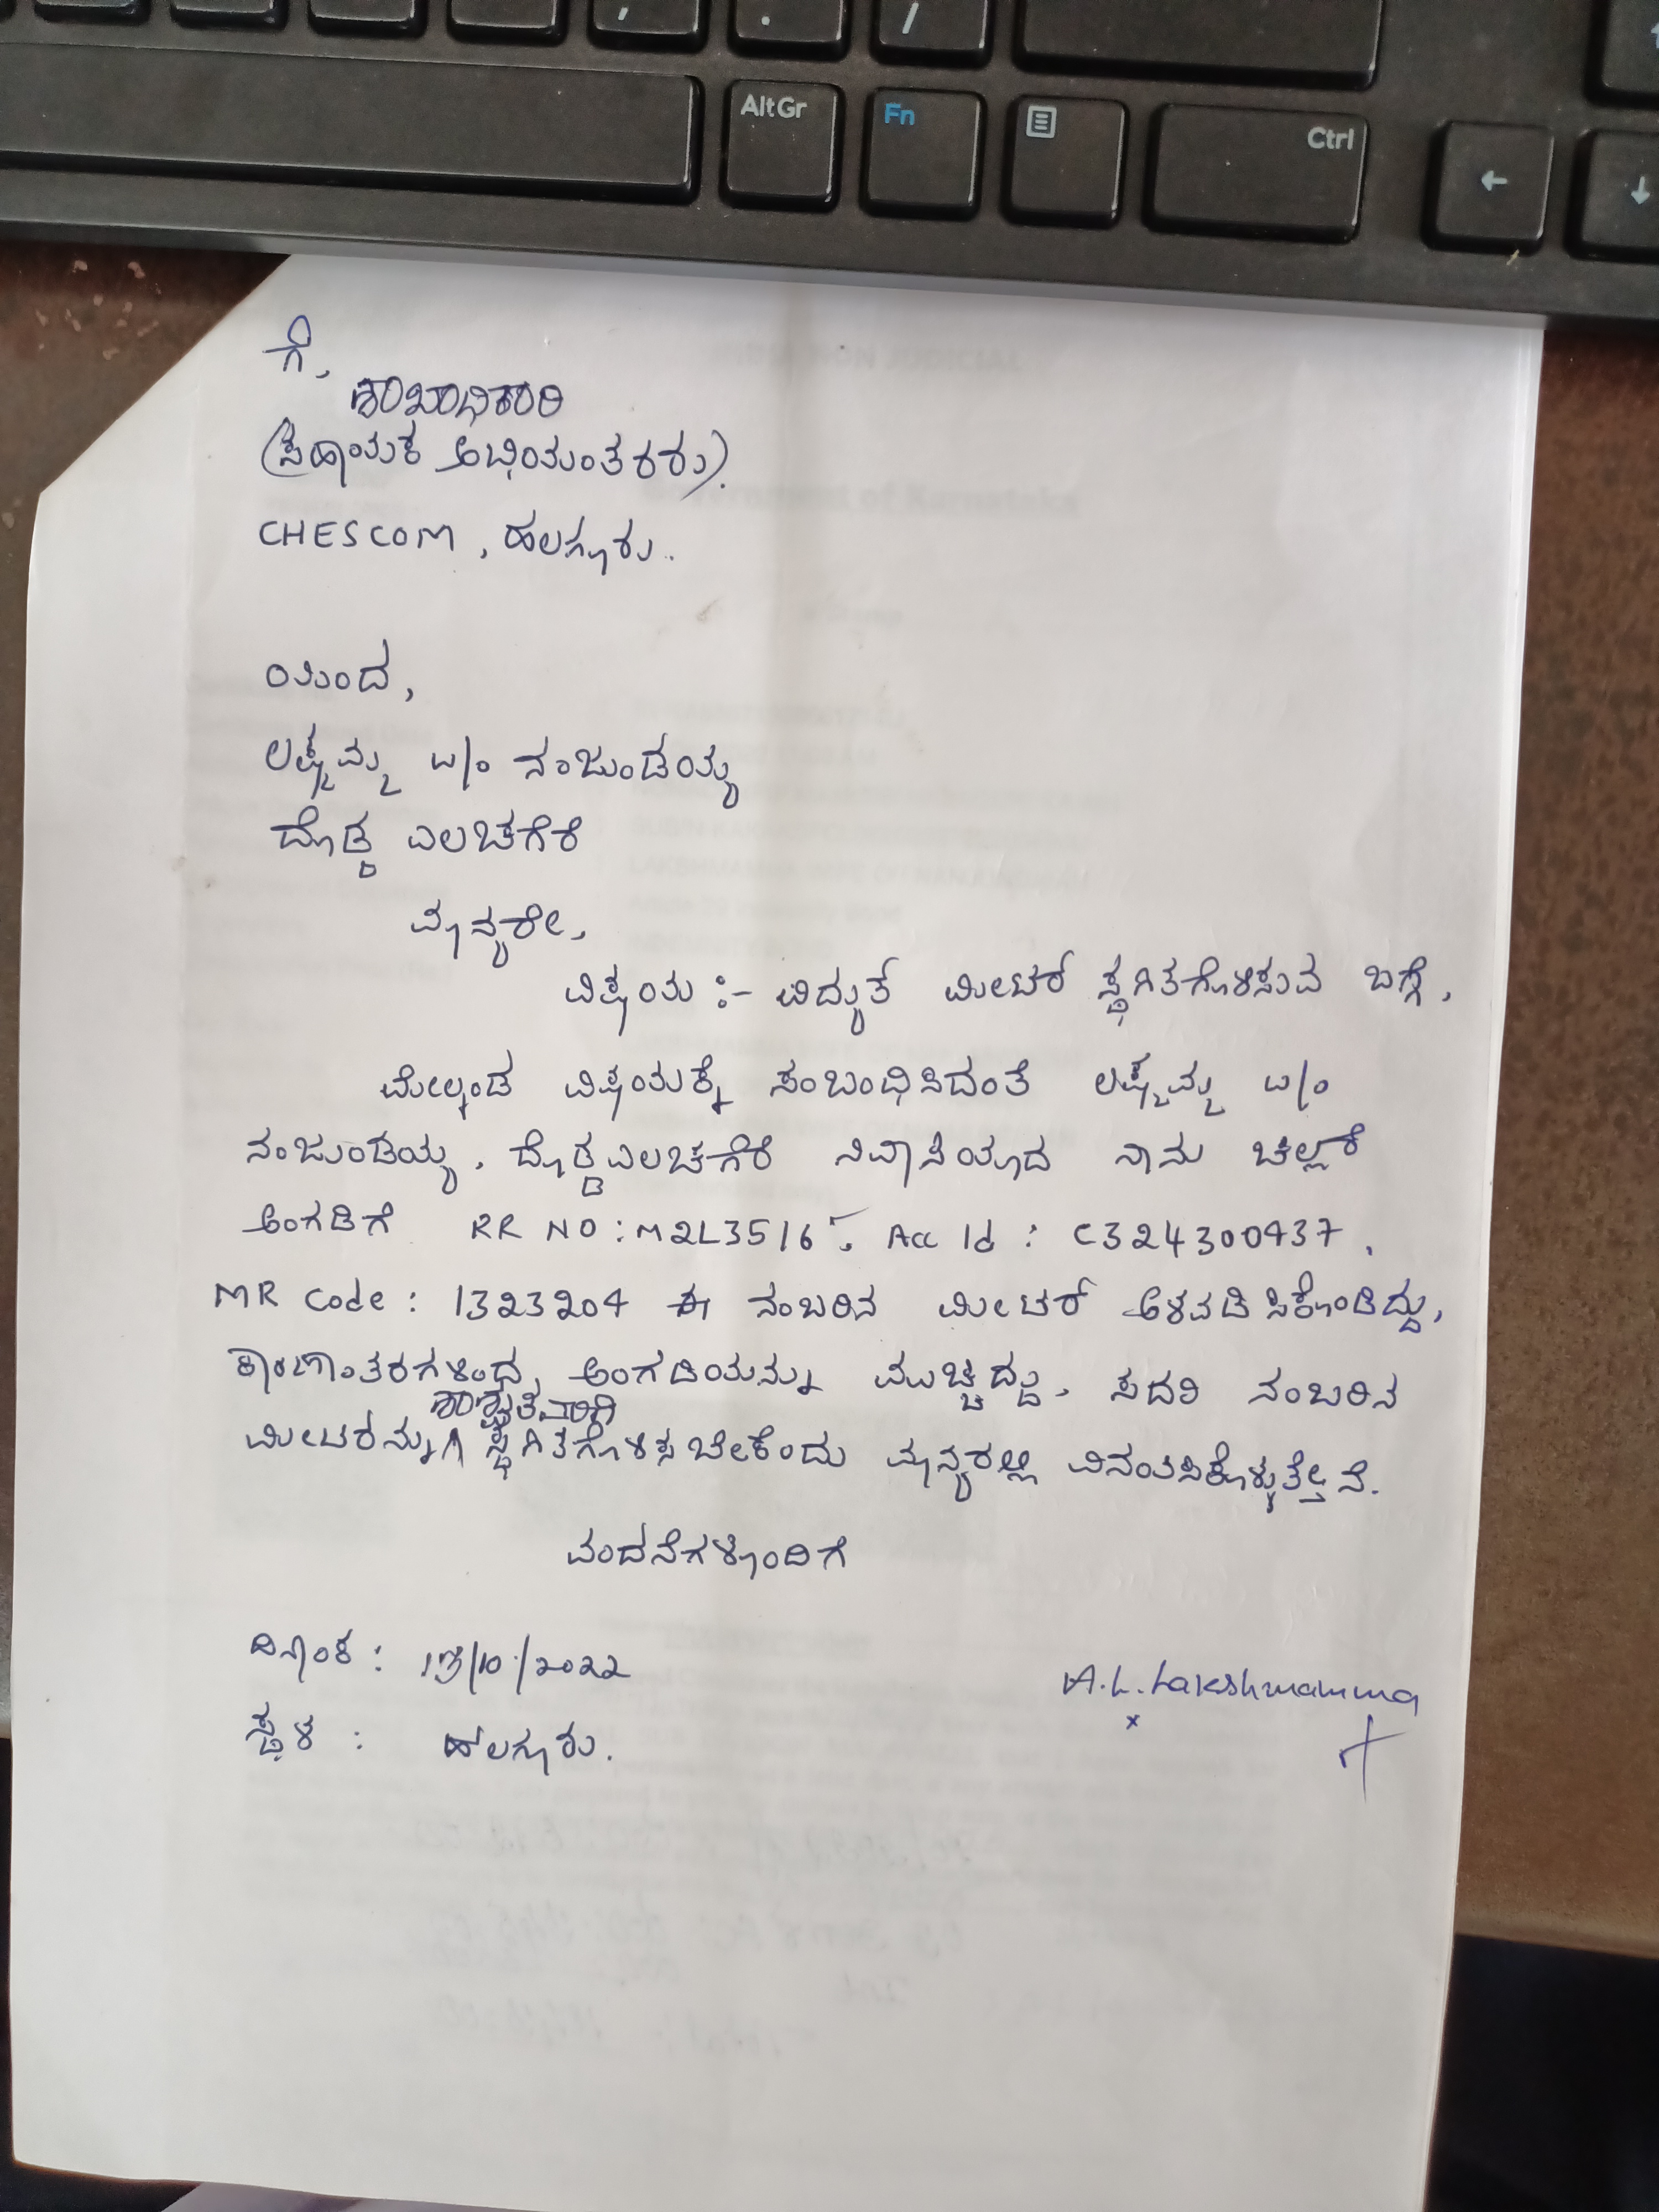 AltGr Fn Ctrl
ಗೆ,
ಶಾಖಾಧಿಕಾರಿ
(ಸಹಾಯಕ ಅಭಿಯಂತರರು).
CHESCOM, ಹಲಗೂರು.
ಯಿಂದ,
ಲಕ್ಷ್ಮಮ್ಮ w/o ನಂಜುಂಡಯ್ಯ
ದೊಡ್ಡ ಎಲಚಗೆರೆ
ಮಾನ್ಯರೇ,
ವಿಷಯ :- ವಿದ್ಯುತ್ ಮೀಟರ್ ಸ್ಥಗಿತಗೊಳಿಸುವ ಬಗ್ಗೆ,
ಮೇಲ್ಕಂಡ ವಿಷಯಕ್ಕೆ ಸಂಬಂಧಿಸಿದಂತೆ ಲಕ್ಷ್ಮಮ್ಮ w/o
ನಂಜುಂಡಯ್ಯ, ದೊಡ್ಡಎಲಚಗೆರೆ ನಿವಾಸಿಯಾದ ನಾನು ಚಿಲ್ಲರೆ
ಅಂಗಡಿಗೆ RR NO : M2L3516, Acc Id : C324300437,
MR Code : 1323204 ಈ ನಂಬರಿನ ಮೀಟರ್ ಅಳವಡಿಸಿಕೊಂಡಿದ್ದು,
ಕಾರಣಾಂತರಗಳಿಂದ, ಅಂಗಡಿಯನ್ನು ಮುಚ್ಚಿದ್ದು, ಸದರಿ ನಂಬರಿನ
ಶಾಶ್ವತವಾಗಿ
ಮೀಟರನ್ನು ^ ಸ್ಥಗಿತಗೊಳಿಸಬೇಕೆಂದು ಮಾನ್ಯರಲ್ಲಿ ವಿನಂತಿಸಿಕೊಳ್ಳುತ್ತೇನೆ.
ವಂದನೆಗಳೊಂದಿಗೆ
ದಿನಾಂಕ : /10/2022
A.L. Lakshmamma
ಸ್ಥಳ : ಹಲಗೂರು.